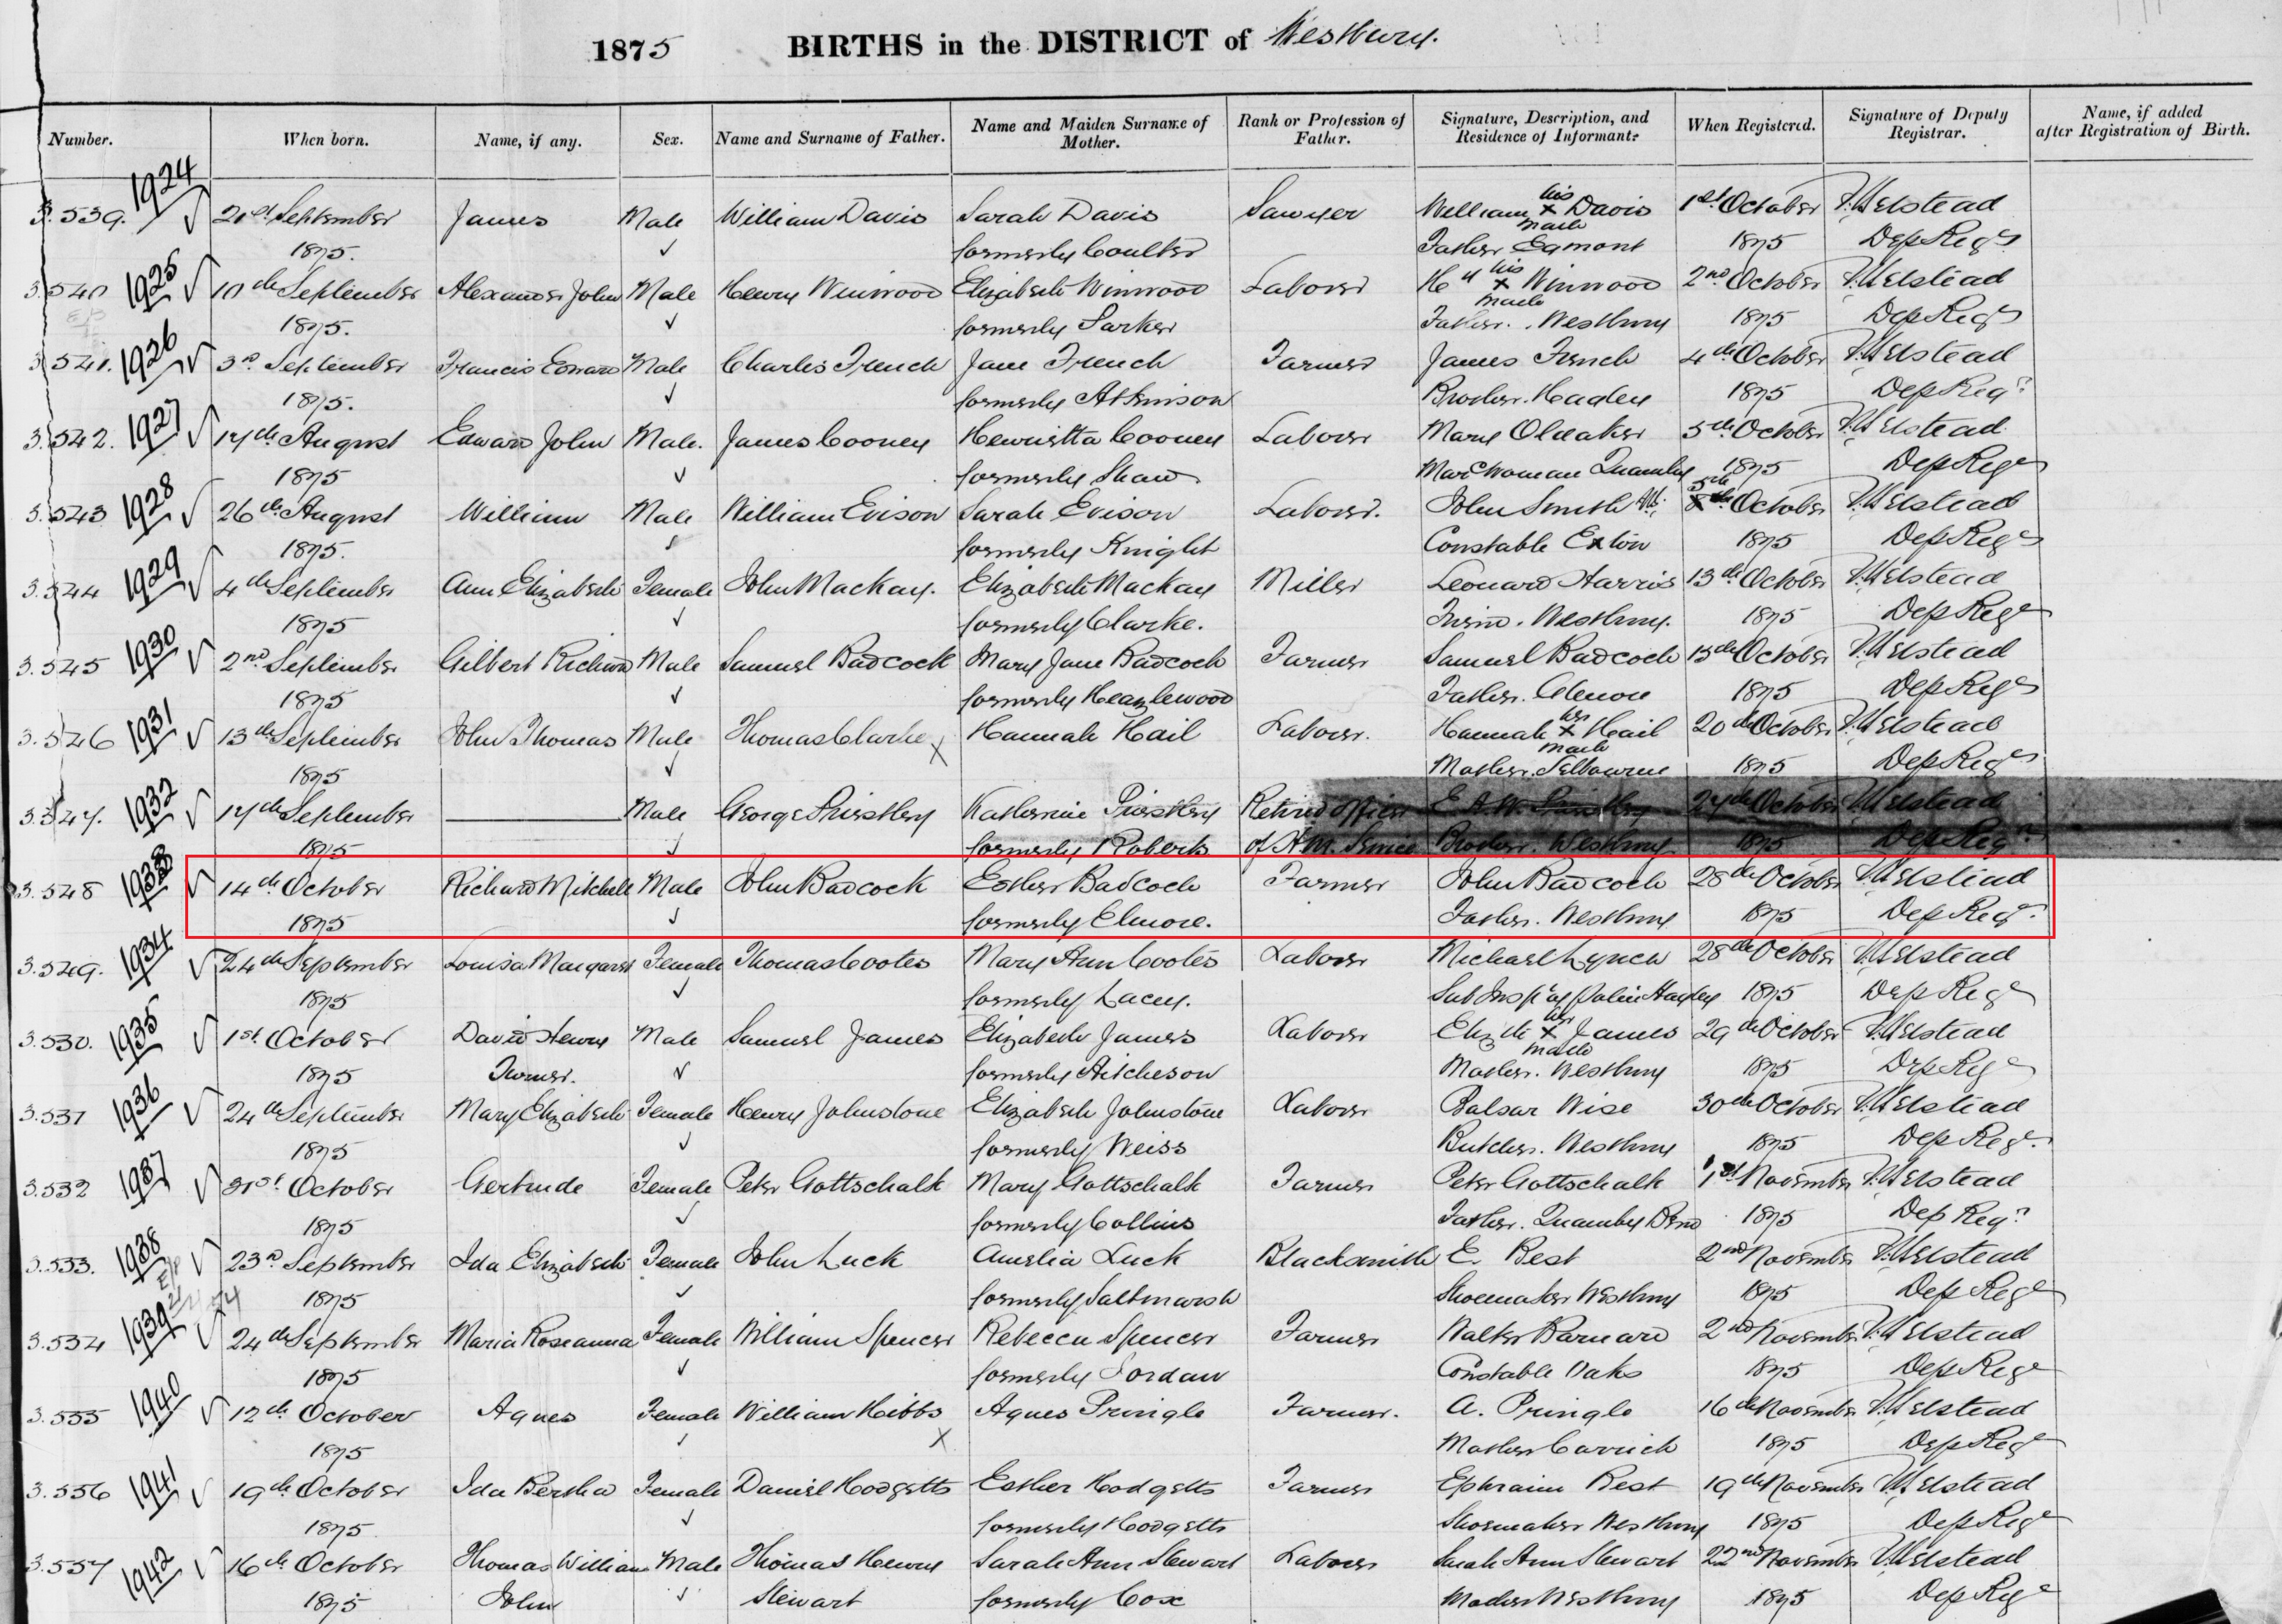 1875 BIRTHS in the DISTRICT of Westbury.
Number. When born. Name, if any. Sex. Name and Surname of Father. Name and Maiden Surname of Mother. Rank or Profession of Father. Signature, Description, and Residence of Informant. When Registered. Signature of Deputy Registrar. Name, if added after Registration of Birth.
3.539. 1924 21st September James Male William Davis Sarah Davis Sawyer William his x mark Davis 1st October
1875. formerly Coulter Father Egmont 1875 Dep Regr
3.540 1925 10th September Alexander John Male Henry Winwood Elizabeth Winwood Laborer Hy his x mark Winwood 2nd October
1875. formerly Father. Westbury 1875 Dep Regr
3.541. 1926 3rd September Francis Edward Male Charles French Jane French Farmer James French 4th October
1875. formerly Atkinson Brother. Hagley 1875 Dep Regr
3.542. 1927 17th August Edward John Male. James Cooney Henrietta Cooney Laborer Mary Oldaker 5th October
1875 formerly Shaw Quamby 1875 Dep Regr
3.543 1928 26th August William Male William Evison Sarah Evison Laborer. John Smith 5th October
1875. formerly Knight Constable Exton 1875 Dep Regr
3.544 1929 4th September Ann Elizabeth Female John Mackay. Elizabeth Mackay Miller Leonard Harris 13th October
1875 formerly Clarke. Friend. Westbury. 1875 Dep Regr
3.545 1930 2nd September Gilbert Richard Male Samuel Badcock Mary Jane Badcock Farmer Samuel Badcock 15th October
1875 formerly Heazlewood Father. Glenore 1875 Dep Regr
3.546 1931 13th September John Thomas Male Thomas Clarke x Hannah Hail Laborer. Hannah her x mark Hail 20th October
1875 Mother. Selbourne 1875 Dep Regr
3.547. 1932 17th September Male George Priestley Katherine Priestley Retired Officer E. A. W. Priestley 27th October
1875 formerly Roberts of H.M. Service Brother. Westbury 1875 Dep Regr
3.548 1933 14th October Richard Mitchell Male John Badcock Esther Badcock Farmer John Badcock 28th October
1875 formerly Elmore. Father. Westbury 1875 Dep Regr
3.549. 1934 24th September Louisa Margaret Female Thomas Cootes Mary Ann Cootes Laborer Michael Lynch 28th October
1875 formerly Lacey. Sub Inspr of Police Hagley 1875 Dep Regr
3.550. 1935 1st October David Henry Male Samuel James Elizabeth James Laborer Elizth her x mark James 29th October
1875 Turner. formerly Aitcheson Mother. Westbury 1875 Dep Regr
3.551 1936 24th September Mary Elizabeth Female Henry Johnstone Elizabeth Johnstone Laborer Balsar Wise 30th October
1875 formerly Weiss Butcher. Westbury 1875 Dep Regr
3.552 1937 31st October Gertrude Female Peter Gottschalk Mary Gottschalk Farmer Peter Gottschalk 1st November
1875 formerly Collins Father. Quamby Bend 1875 Dep Regr
3.553. 1938 23rd September Ida Elizabeth Female John Luck Amelia Luck Blacksmith E. Best 2nd November
1875 formerly Saltmarsh Shoemaker Westbury 1875 Dep Regr
3.554 1939 24th September Maria Roseanna Female William Spencer Rebecca Spencer Farmer Walter Barnard 2nd November
1875 formerly Jordan Constable Oaks 1875 Dep Regr
3.555 1940 12th October Agnes Female William Hibbs Agnes Pringle Farmer. A. Pringle 16th November
1875 x Mother Carrick 1875 Dep Regr
3.556 1941 19th October Ida Bertha Female Daniel Hodgetts Esther Hodgetts Farmer Ephraim Best 19th November
1875 formerly Hodgetts Shoemaker Westbury 1875 Dep Regr
3.557 1942 16th October Thomas William Male Thomas Henry Sarah Ann Stewart Laborer Sarah Ann Stewart 22nd November
1875 John Stewart formerly Cox Mother Westbury 1875 Dep Regr